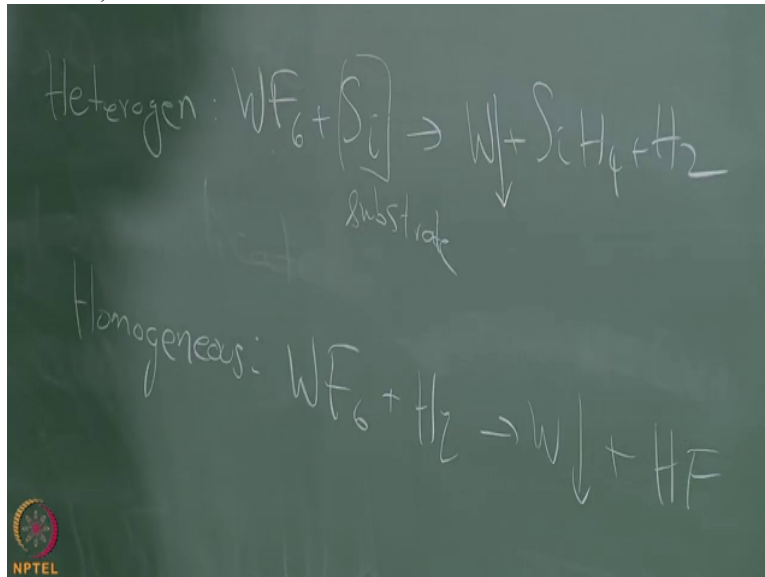 Heterogen: WF₆ + [Si] → W↓ + SiH₄ + H₂
substrate
Homogeneous: WF₆ + H₂ → W↓ + HF
NPTEL